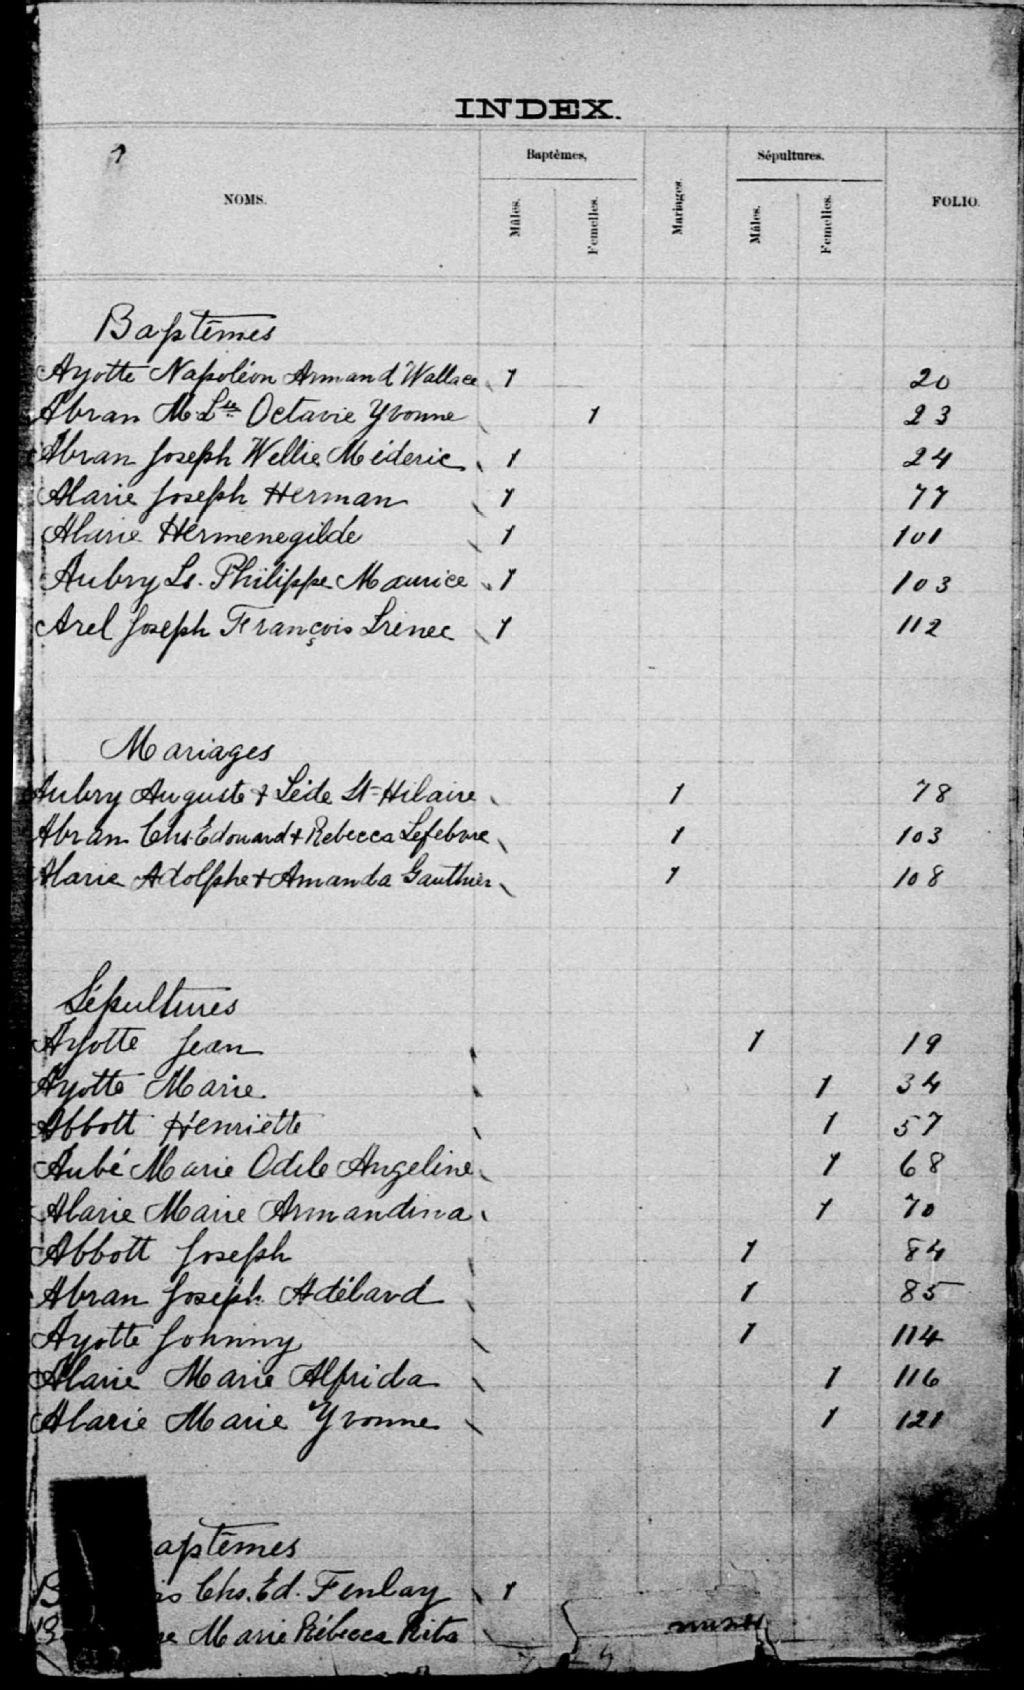 INDEX.
NOMS. Baptêmes, Mâles. Femelles. Mariages. Sépultures. Mâles. Femelles. FOLIO.
Baptêmes
Ayotte Napoléon Armand Wallace 1 20
Abran M. Lse Octavie Yvonne 1 23
Abran Joseph Wellie Méderic 1 24
Alarie Joseph Herman 1 77
Alarie Hermenegilde 1 101
Aubry Ls. Philippe Maurice 1 103
Arel Joseph François Irenec 1 112
Mariages
Aubry Auguste & Léde St-Hilaire 1 78
Abran Chs. Edouard & Rebecca Lefebvre 1 103
Alarie Adolphe & Amanda Gauthier 1 108
Sépultures
Ayotte Jean 1 19
Ayotte Marie 1 34
Abbott Henriette 1 57
Aubé Marie Odile Angeline 1 68
Alarie Marie Armandina 1 70
Abbott Joseph 1 84
Abran Joseph Adélard 1 85
Ayotte Johnny 1 114
Alarie Marie Alfrida 1 116
Alarie Marie Yvonne 1 121
aptêmes
Chs. Ed. Fenlay 1
Marie Rébecca Rita